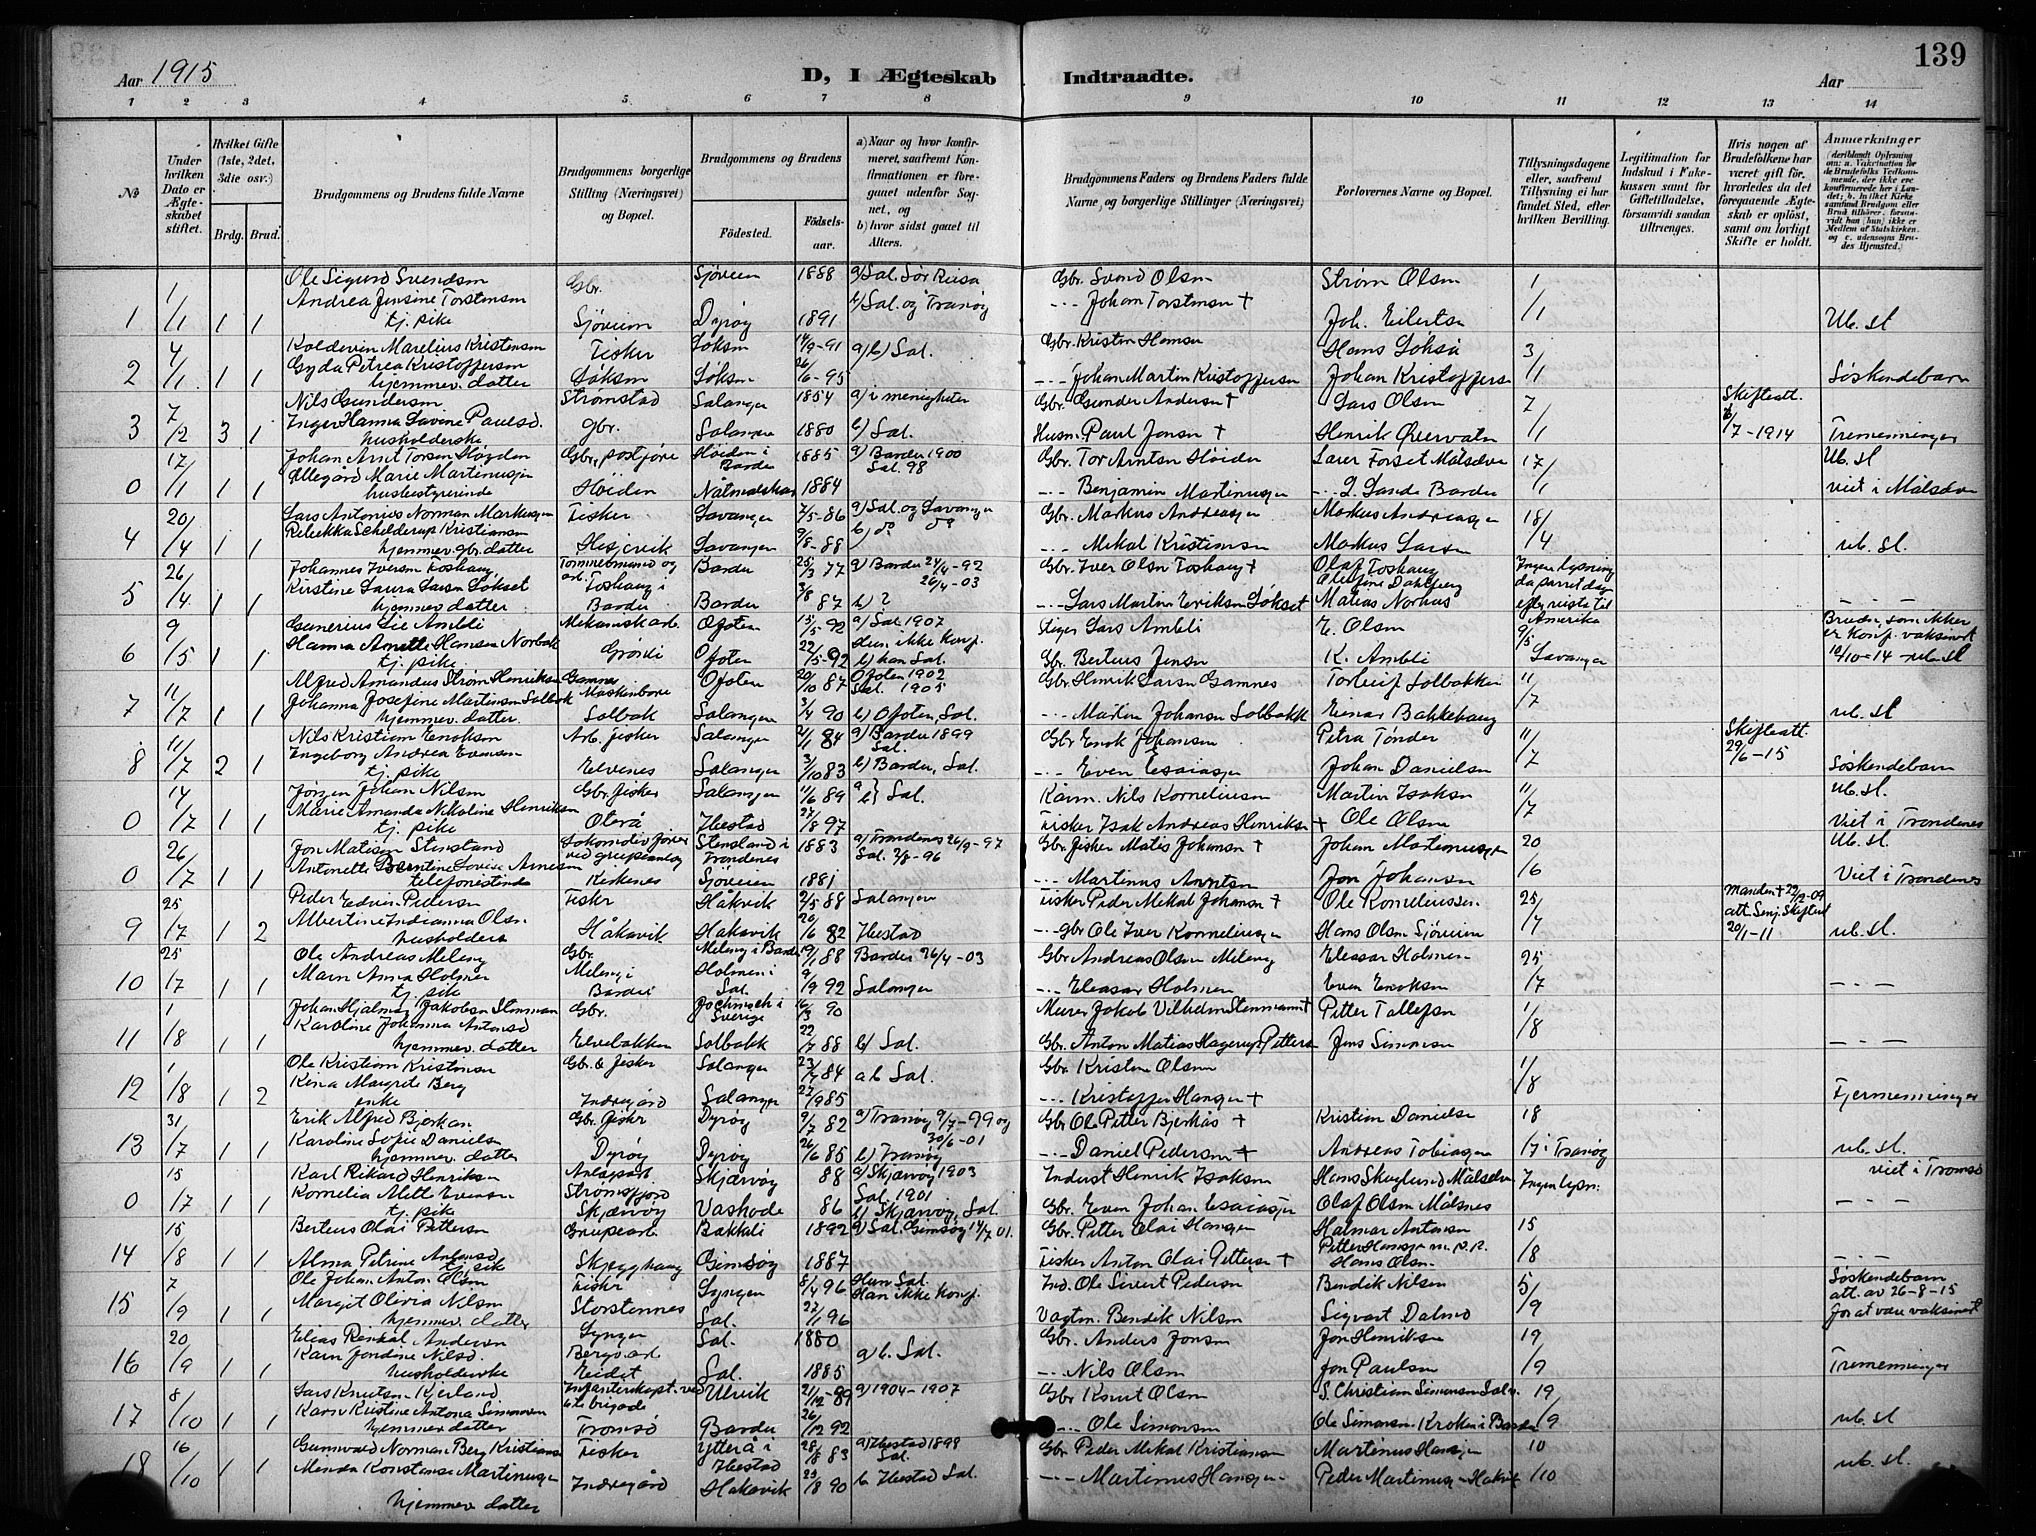 Aar 1915
D, I Ægteskab Indtraadte.
139
Aar
1 2 3 4 5 6 7 8 9 10 11 12 13 14
No
Under hvilken Dato er Ægteskabet stiftet.
Hvilket Gifte (1ste, 2det, 3die osv.)
Brdg. Brud.
Brudgommens og Brudens fulde Navne
Brudgommens borgerlige Stilling (Næringsvei) og Bopæl.
Brudgommens og Brudens
Fødested.
Fødselsaar.
a) Naar og hvor konfirmeret, saafremt Konfirmationen er foregaaet udenfor Sognet, og
b) hvor sidst gaaet til Alters.
Brudgommens Faders og Brudens Faders fulde Navne, og borgerlige Stillinger (Næringsvei)
Forlovernes Navne og Bopæl.
Tillysningsdagene eller, saafremt Tillysning ei har fundet Sted, efter hvilken Bevilling.
Legitimation for Indskud i Enkekassen samt for Giftetilladelse, forsaavidt saadan tiltrænges.
Hvis nogen af Brudefolkene har været gift før, hvorledes da det foregaaende Ægteskab er opløst, samt om lovligt Skifte er holdt.
Anmerkninger
Ole Sigurd Svendsen Gbr. Sjøveien 1888 a) Sal. Sør Reisa Gbr. Svend Olsen Strøm Olsen 1
Andrea Jensine Torstensen b) Sal. og Tranøy -"- Johan Torstensen +
1 1/1 1 1 tj. pike Sjøveien Dyrøy 1891 Joh. Eilertsen /1 Ub. sl
Koldevin Marelius Kristensen Fisker Løksen 14/9-91 a) b) Sal. Gbr. Kristen Hansen Hans Løkså 3
Gyda Petrea Kristoffersen
2 4/1 1 1 hjemmev. datter Løksen Løksen 26/6-95 -"- Johan Martin Kristoffersen Johan Kristoffersen /1 Søskendebarn
Nils Gundersen Strømstad Salangen 1854 a) i menigheten Gbr. Gunder Andersen + Lars Olsen 7 Skifteatt.
Inger Hanna Lavine Paulsd.
3 7/2 3 1 husholderske gbr. Salangen 1880 b) Sal. Husm. Paul Jensen + Henrik Øvervatn /1 /7-1914 Tremenninger
Johan Arnt Torsen Høgden Gbr., postfører Høiden i Bardu 1885 a) Bardu 1900 Sal. 98 Gbr. Tor Arntsen Høiden Fosset Målselv 17 Ub. sl
Marie Martinusen
0 17/1 1 1 husbestyrerinde Høiden 1884 -"- Benjamin Martinusen L. Sande Bardu /1 viet i Målselv
Lars Antonius Norman Markussen Fisker Lavangen 7/5-86 a) Sal. og Lavangen Gbr. Markus Andreassen Markus Andreassen 18
Rebekka Schelderup Kristiansen
4 20/4 1 1 hjemmev. gbr. datter Lavangen 9/8-88 b) do do -"- Mikal Kristiansen Markus Larsen /4 ub. sl.
Johannes Iversen Toshaug Tømmermand og arb. Bardu 25/3 77 a) Bardu 24/4-92 Gbr. Iver Olsen Toshaug + Olaf Toshaug Ingen lysning
Kirstine Laura Larsen Løkset Toshaug i 26/4-03 Dahlberg da parret dag
5 26/4 1 1 hjemmev. datter Bardu Bardu 3/8 87 b) ? -"- Lars Martin Eriksen Løkset Matias Norhus efter reiste til Amerika
Gunerius Lie Ambli Mekanisk arb. Ofoten 15/5-92 a) Sal. 1907 Lars Ambli E. Olsen 9/5 Bruden, som ikke
Hanna Anette Hansen Norbak Hun ikke konf. er konf. vaksinert
6 9/5 1 1 tj. pike Ofoten 22/5-92 b) han Sal. Gbr. Berteus Jensen K. Ambli Lavangen 10/10-14 ub. sl
Alfred Amandus Strøm Henriksen Gamnes Ofoten 20/10 87 Ofoten 1902 Gbr. Henrik Larsen Gamnes Torleif Solbakken 11
Johanna Josefine Martinsen Solbak Maskenbore Sal. 1905
7 11/7 1 1 hjemmev. datter Solbak Salangen 3/4 90 b) Ofoten, Sal. -"- Martin Johansen Solbakk Einar Bakkehaug /7 ub. sl
Nils Kristian Enoksen Arb. fisker Salangen 2/1 84 a) Bardu 1899 Sal. Gbr. Enok Johansen Petra Tønder 11 Skifteatt.
Ingeborg Andrea Evensen 29/6-15
8 11/7 2 1 tj. pike Elvenes Salangen 3/10 83 b) Bardu, Sal. -"- Even Esaiassen Johan Danielsen /7 Søskendebarn
Jørgen Johan Nilsen Gbr. fisker Salangen 11/6 89 a b} Sal. Kårm. Nils Korneliussen Martin Isaksen 11 ub. sl.
Marie Amanda Nikoline Henriksen
0 14/7 1 1 tj. pike Oterå Ibestad 27/8 97 Fisker Isak Andreas Henriksen + Ole Olsen /7 Viet i Trondenes
Jon Matisen Stensland Lokomotivfører Stensland i Trondenes 1883 a) Trondenes 26/9-97 Gbr. fisker Matis Johansen + Johan Martinussen 20 Ub. sl.
Antonette Berntine Lovise Arnesen ved grubeanlæg Sal. 2/8-96
0 26/7 1 1 telefonistinde Kirkenes Sjøveien 1881 -"- Martinus Arntsen Jon Johansen /6 Viet i Trondenes
Peder Edvin Pedersen Fisker Håkvik 2/5 88 Salangen Fisker Peder Mikal Johansen + Ole Korneliussen 25 Manden + 22/2-09
Albertine Indianna Olsen att. Senj. Skifteret
9 25/7 1 2 husholders Håkavik Håkavik 20/6 82 Ibestad -"- Gbr Ole Iver Korneliussen Hans Olsen Sjøveien /7 20/1-11 ub. sl.
Ole Andreas Meleng Gbr. Meleng i Bardu 19/1 88 Bardu 26/4-03 Gbr Andreas Olsen Meleng Eleasar Holmen 25
Marn Anna Holmen Meleng i Holmen i
10 25/7 1 1 tj. pike Bardu Sal. 9/9 92 Salangen -"- Eleasar Holmen Even Enoksen /7 -"-
Johan Hjalmar Jakobsen Stenman Gbr. Jockmock i Sverige 16/3 90 Murer Jakob Vilhelm Stenmann + Pitter Tollefsen 1/8
Karoline Johanna Antonsd
11 1/8 1 1 hjemmev. datter Elvebakken Solbakk 22/7 88 b) Sal. Gbr. Anton Matias Hagerup Pettersen Jens Simonsen -"-
Ole Kristian Kristensen Gbr. & fisker Salangen 23/7 84 a b Sal. Gbr Kristen Olsen 1/8
Rina Margret Berg
12 1/8 1 2 enke Indregård Salangen 27/9 85 -"- Kristoffer Hansen + Fjermenninger
Erik Alfred Bjerkan Gbr. fisker Dyrøy 9/7 82 a) Tranøy 9/7-99 og 30/6-01 Gbr Ole Pitter Bjerkås + Kristian Danielsen 18
Karoline Sofie Danielsen
13 31/7 1 1 hjemmev. datter Dyrøy Dyrøy 26/6 85 b) Tranøy -"- Daniel Pedersen + Andreas Tobiassen /7 i Tranøy ub. sl.
Karl Rikard Henriksen Anlægsarb. Skjærvøy 88 a) Skjærvøy 1903 Inderst Henrik Isaksen Hans Skoglund Målselv Ingen lysn: viet i Tromsø
Kornelia Mette Evensen Strømsfjord Sal. 1901
0 15/7 1 1 tj. pike Skjærvøy Vashode 86 b) Skjærvøy, Sal. Gbr. Even Johan Esaiassen Olaf Olsen Målsnes -"-
Berteus Olai Pettersen Grubearb. Bakkeli 1892 a) Sal. Gimsøy 14/7 01. Gbr. Pitter Olai Hansen Halmar Antonsen 15
14 15/8 1 1 Alma Petrine Antonsd tj. pik Skjegghaug Gimsøy 1887 Fisker Anton Olai Pettersen + Hans Olsen /8
Ole Johan Anton Olsen Fisker Lyngen 8/4 96 Hun Sal. Han ikke konf. Ind. Ole Sivert Pedersen Bendik Nilsen 5/9 Søskendebarn
Margit Olivia Nilsen Storstennes att. av 26-8-15
15 7/9 1 1 hjemmev. datter Sal. 27/1 96 Vagtm. Bendik Nilsen Sigvart Dalmo for at være vaksinert
Elias Reinhal Andersen Lyngen Sal. 1880 Gbr. Anders Jonsen Jon Henriksen 19
Karn Jondine Nilsd. Bergv.arb. a) b. Sal.
16 20/9 1 1 husholderske Eidet Sal. 1885 -"- Nils Olsen Jon Paulsen /9 Tremenninger
Lars Knutsen Kjerland Infanterikapt. ved Ulvik 21/12-89 a) 1904-1907 Gbr Knut Olsen S. Christian Simonsen Saln. 19
Karn Kristine Antona Simonsen 6te brigade
17 8/10 1 1 hjemmev. datter Tromsø Bardu 26/12 92 -"- Ole Simonsen Ole Simonsen Kroken i Bardu /9 ub. sl
Gunnvald Norman Berg Kristiansen Fisker Ytterå i Ibestad 28/8 83 a) Ibestad 1898 Sal. Gbr Peder Mikal Kristiansen Martinus Hansen 10
18 16/10 1 1 Minda Konstanse Martinussen Indregård Håkavik 23/8 90 b Ibestad Sal. -"- Martinus Hansen Peder Martinussen Håkvik /10 ub. sl.
hjemmev datter